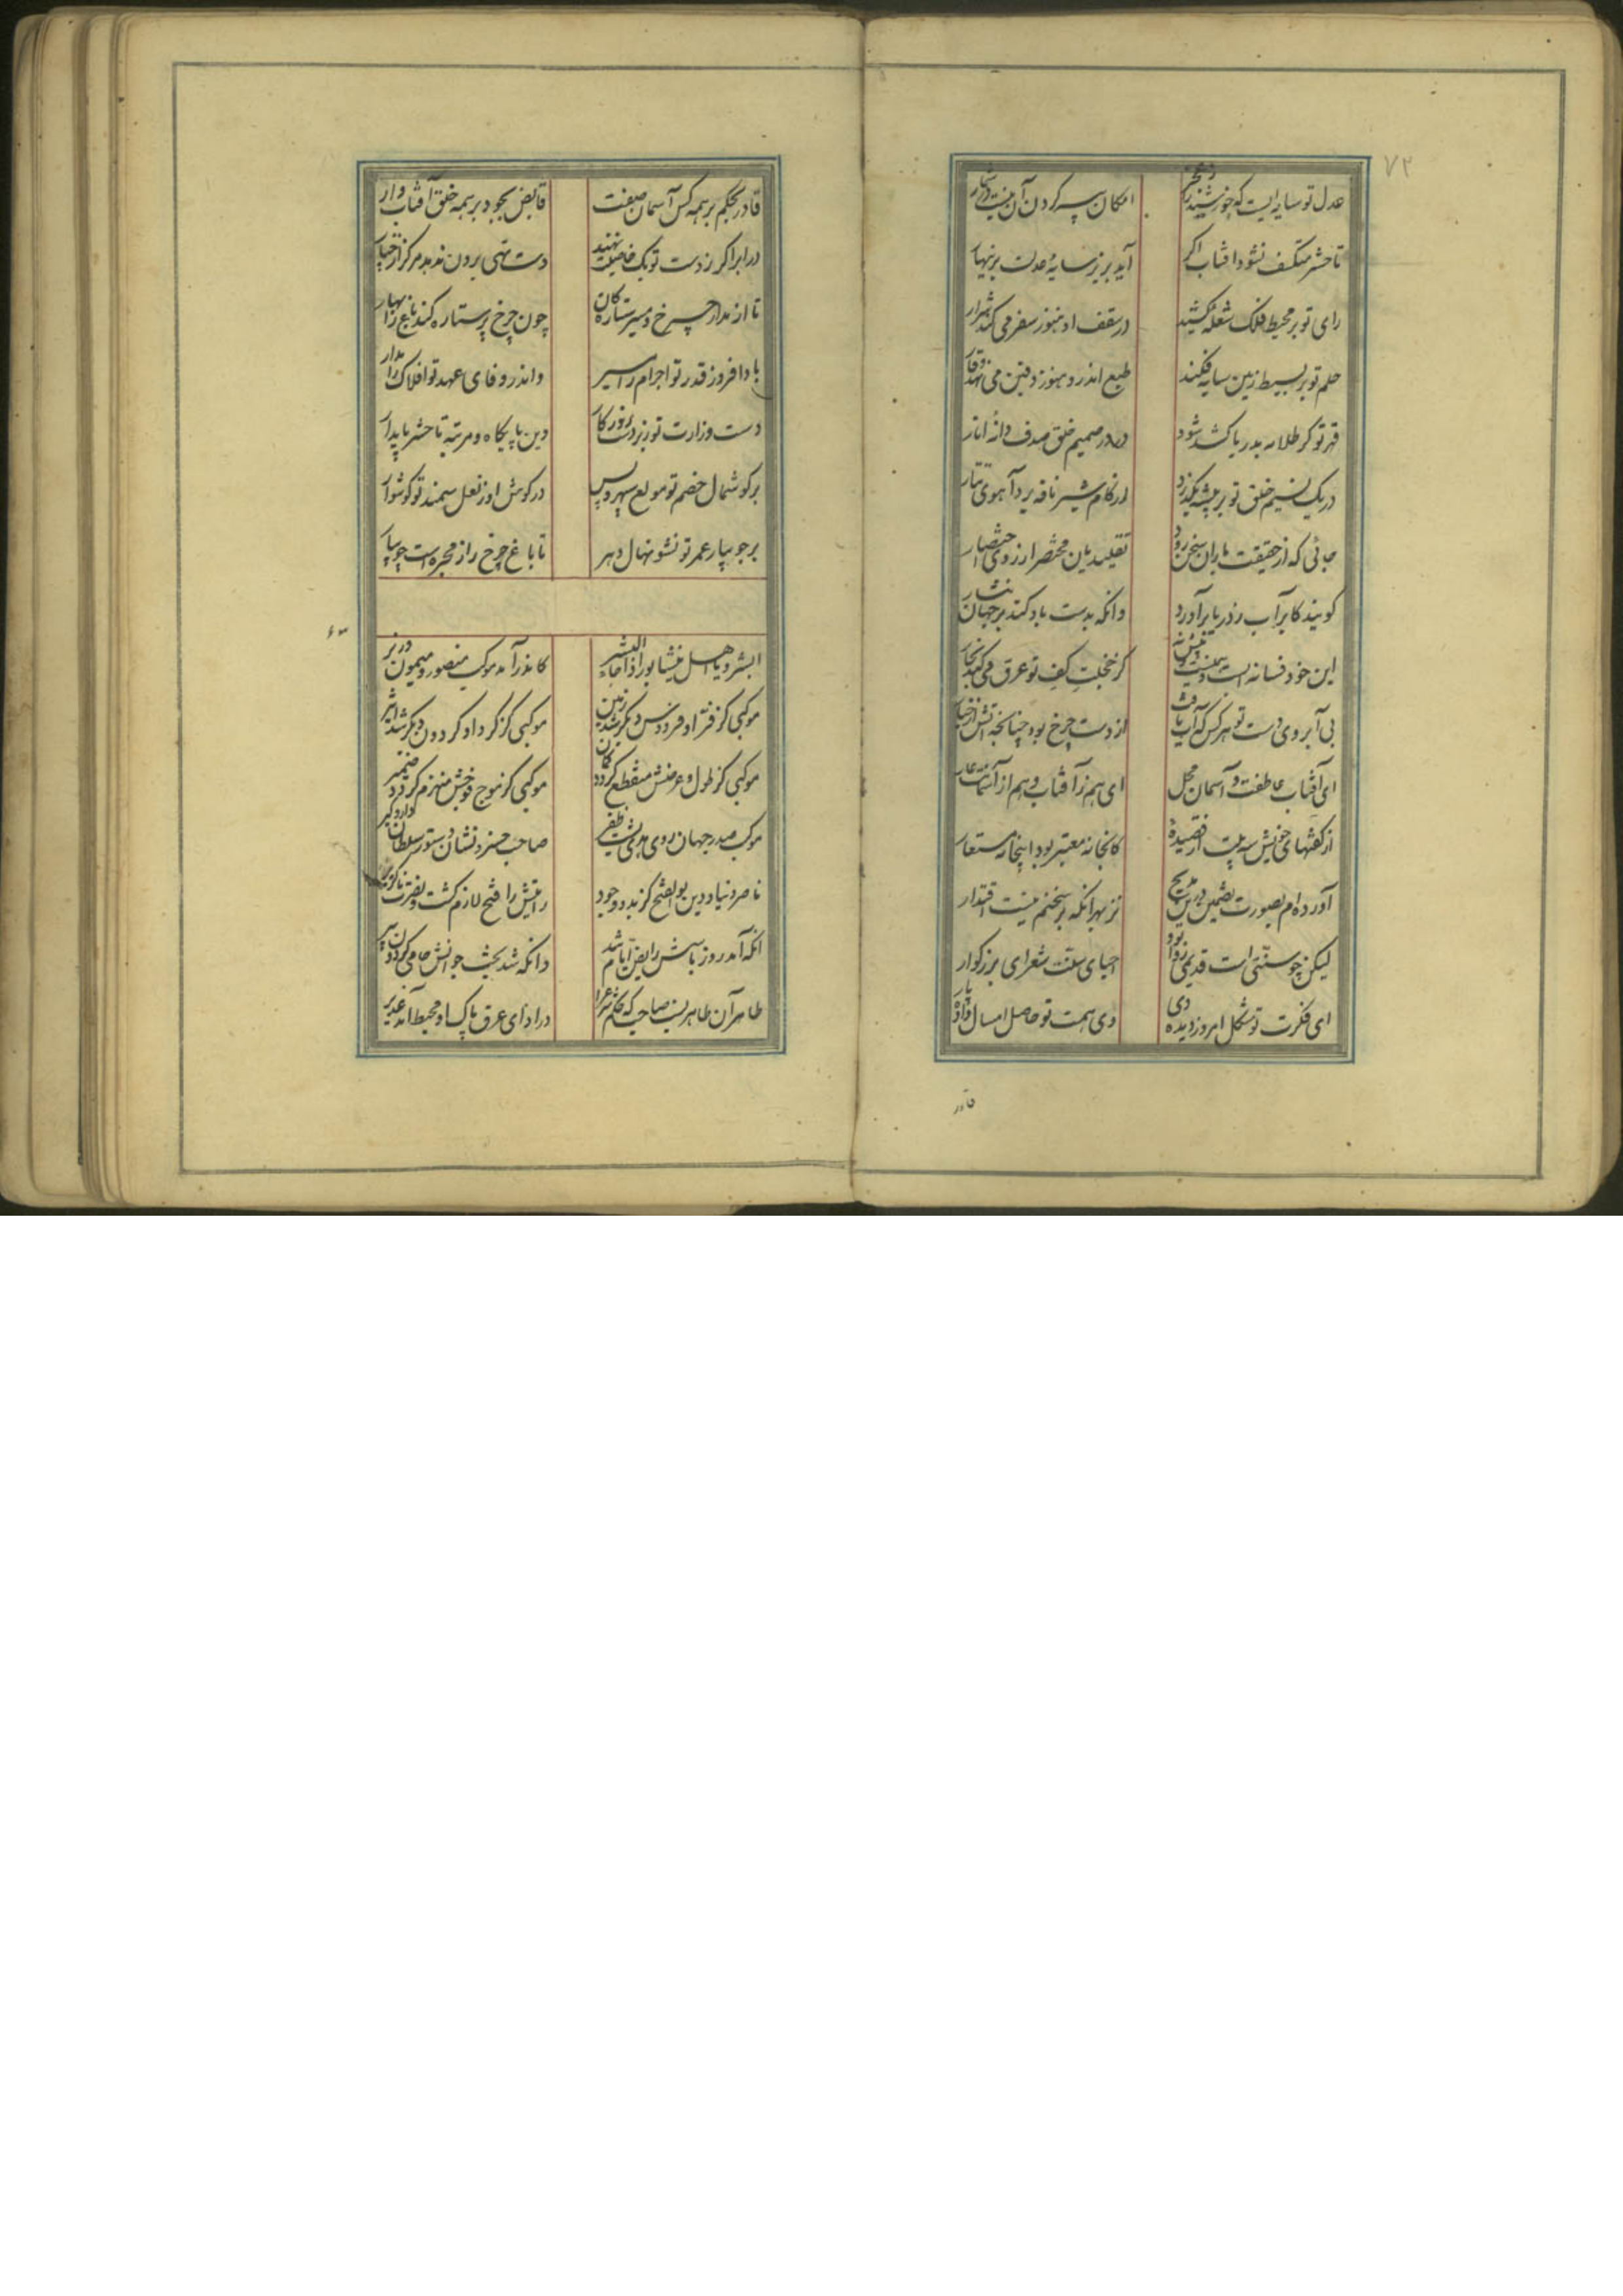 ۷۲
عدل تو سایه ایست که خورشید را ز عجز
امکان پی سپر کردن آن نیست در شمار
تا حشر منکسف نشود افتاب اگر
آید بزیر سایه عدلت بزینهار
رای تو بر محیط فلک شعله کشید
در سقف او هنوز سفر می کند شرار
حلم تو بر بسیط زمین سایه فکند
طبع اندرو هنوز دفین می نهد وقار
قهر تو گر طلایه بدریا کشد شود
در در صمیم حلق صدف دانه انار
در یک نسیم خلق تو بر بیشه بگذرد
از کام شیر نافه برد آهوی تتار
جائی که از حقیقت باران سخن رود
تقلیدیان مختصر از روی اختصار
گویند کابر آب ز دریا برآورد
وانگه بدست باد کند بر جهان نثار
این خود فسانه است
کز خجلت کف تو عرق می کند بحار
بی آبروی دست تو هر کس که آب یافت
از دست چرخ بود چنانکه آتش از خیار
ای آفتاب عاطفت و آسمان محل
ای هم ز آفتاب و هم از آسمانت عار
از گفتهای خویش سه بیت از قصیدهٔ
کانجا نه معتبر بود اینجا نه مستعار
آورده ام بصورت تضمین درین مدیح
نز بهر آنکه بر سخنم نیست اقتدار
لیکن چو سنتی است قدیمی روا بود
احیای سنت شعرای بزرگوار
ای فکرت تو مشکل امروز دیده دی
وی همت تو حاصل امسال داده پار
قادر
قادر بحکم بر همه کس آسمان صفت
فایض بجود بر همه خلق آفتاب وار
در ابر اگر ز دست تو یک خاصیت نهند
دست تهی برون ندمد هرگز از چنار
تا از مدار چرخ و مسیر ستارگان
چون چرخ پر ستاره کند باغ را بهار
بادا فروز قدر تو اجرام را مسیر
واندر وفای عهد تو افلاک را مدار
دست وزارت تو زبردست روزگار
وین پایگاه و مرتبه تا حشر پایدار
بر گوشمال خصم تو مولع سپهر و پس
در گوش او ز نعل سمند تو گوشوار
بر جویبار عمر تو نشو نهال دهر
تا باغ چرخ را ز مجره است جویبار
۶۳
ابشروا یا اهل نیشابور اذا جاء البشیر
کاندر آمد موکب منصور و میمون وزیر
موکبی کز فر او فردوس دیگر شد زمین
موکبی کز گرد او گردون دیگر شد اثیر
موکبی کز طول و عرضش منقطع گردد گمان
موکبی کز موج فوجش منهزم گردد ضمیر
موکب صدر جهان پشت هدی روی ظفر
صاحب خسرو نشان دستور سلطان دار و گیر
ناصر دنیا و دین بوالفتح کز بدو وجود
رایتش را فتح لازم گشت و نصرت ناگزیر
انکه آمد روز بأسش رایض ایام شد
وانکه شد بخت جوانش حامی گردون پیر
طاهر آن طاهر نسب صاحب که حکم شرع را
در ادای عرق پاک او محیط آمد غدیر